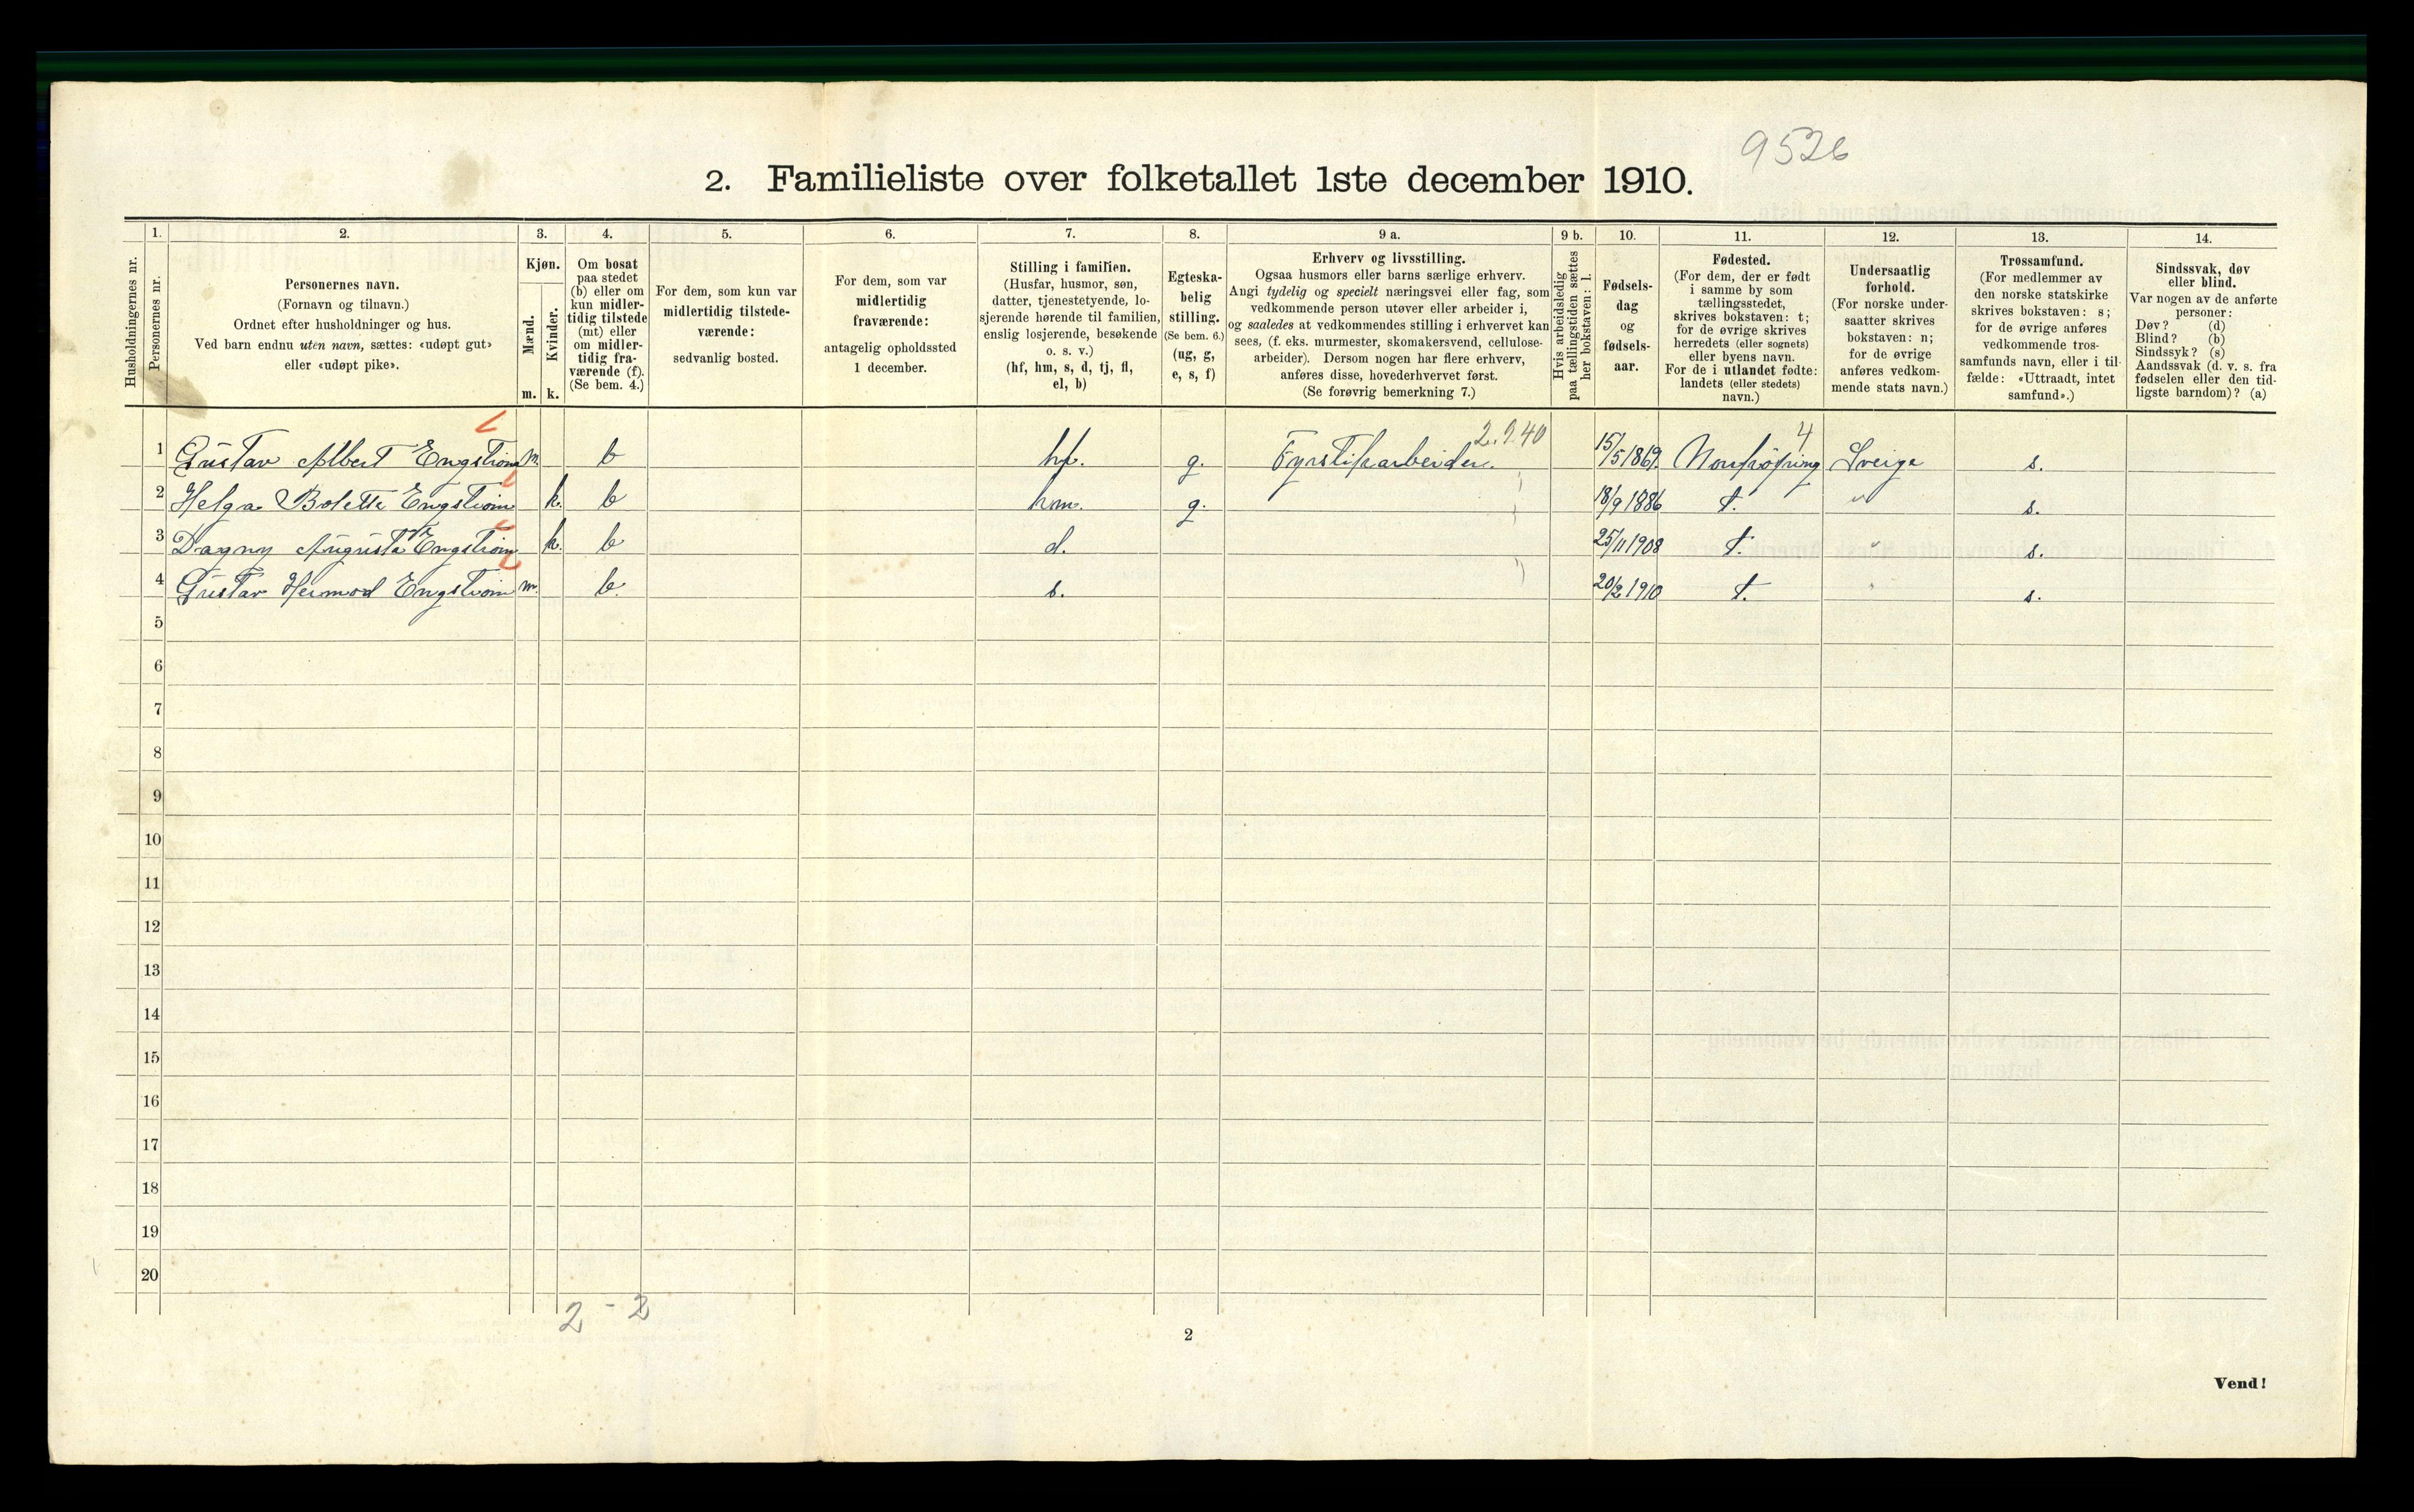 9526
2. Familieliste over folketallet 1ste december 1910.
Husholdningernes nr.
1.
Personernes nr.
2.
Personernes navn.
(Fornavn og tilnavn.)
Ordnet efter husholdninger og hus.
Ved barn endnu uten navn, sættes: «udøpt gut»
eller «udøpt pike».
3.
Kjøn.
Mænd.
Kvinder.
m. k.
4.
Om bosat
paa stedet
(b) eller om
kun midler-
tidig tilstede
(mt) eller
om midler-
tidig fra-
værende (f).
(Se bem. 4.)
5.
For dem, som kun var
midlertidig tilstede-
værende:
sedvanlig bosted.
6.
For dem, som var
midlertidig
fraværende:
antagelig opholdssted
1 december.
7.
Stilling i familien.
(Husfar, husmor, søn,
datter, tjenestetyende, lo-
sjerende hørende til familien,
enslig losjerende, besøkende
o. s. v.)
(hf, hm, s, d, tj, fl,
el, b)
8.
Egteska-
belig
stilling.
(Se bem. 6.)
(ug, g,
e, s, f)
9 a.
Erhverv og livsstilling.
Ogsaa husmors eller barns særlige erhverv.
Angi tydelig og specielt næringsvei eller fag, som
vedkommende person utøver eller arbeider i,
og saaledes at vedkommendes stilling i erhvervet kan
sees, (f. eks. murmester, skomakersvend, cellulose-
arbeider). Dersom nogen har flere erhverv,
anføres disse, hovederhvervet først.
(Se forøvrig bemerkning 7.)
9 b.
Hvis arbeidsledig
paa tællingstiden sættes
her bokstaven: l.
10.
Fødsels-
dag
og
fødsels-
aar.
11.
Fødested.
(For dem, der er født
i samme by som
tællingsstedet,
skrives bokstaven: t;
for de øvrige skrives
herredets (eller sognets)
eller byens navn.
For de i utlandet fødte:
landets (eller stedets)
navn.)
12.
Undersaatlig
forhold.
(For norske under-
saatter skrives
bokstaven: n;
for de øvrige
anføres vedkom-
mende stats navn.)
13.
Trossamfund.
(For medlemmer av
den norske statskirke
skrives bokstaven: s;
for de øvrige anføres
vedkommende tros-
samfunds navn, eller i til-
fælde: «Uttraadt, intet
samfund».)
14.
Sindssvak, døv
eller blind.
Var nogen av de anførte
personer:
Døv? (d)
Blind? (b)
Sindssyk? (s)
Aandssvak (d. v. s. fra
fødselen eller den tid-
ligste barndom)? (a)
2.9.40 4
1 Gustav Albert Engström m. b hf. g. Fyrstikarbeider. 15/5 1869 Norrköping Sveige s.
2 Helga Bolette Engström k. b hm. g. 18/9 1886 t. " s.
3 Dagny Augusta Engström k. b d. 25/11 1908 t. " s.
4 Gustav Hermod Engström m. b. s. 20/2 1910 t. " s.
5
6
7
8
9
10
11
12
13
14
15
16
17
18
19
20
2 - 2
2
Vend!